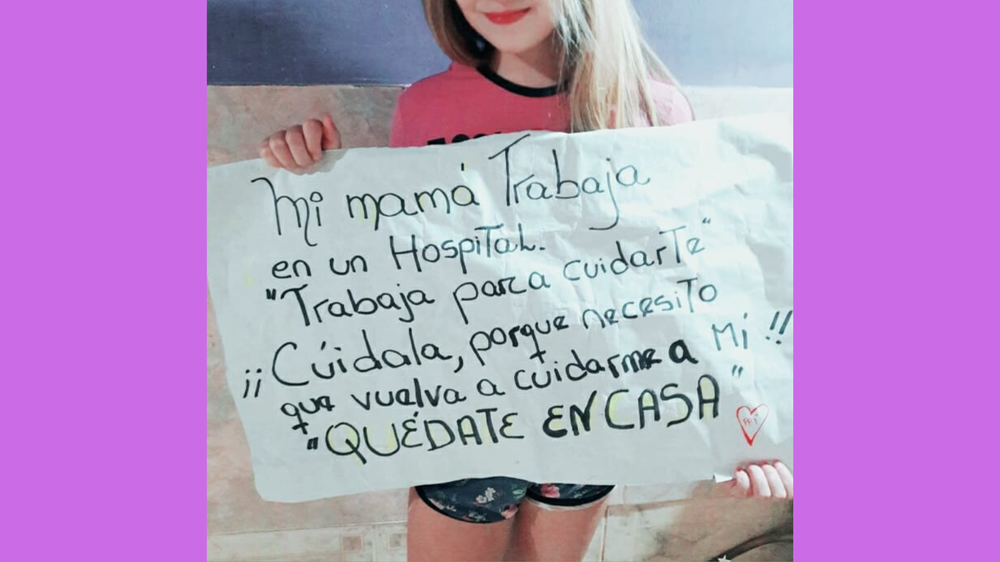 Mi mamá Trabaja
en un Hospital.
"Trabaja para cuidarte"
¡¡Cúidala, porque necesito
que vuelva a cuidarme a Mí!!
"QUÉDATE EN CASA"